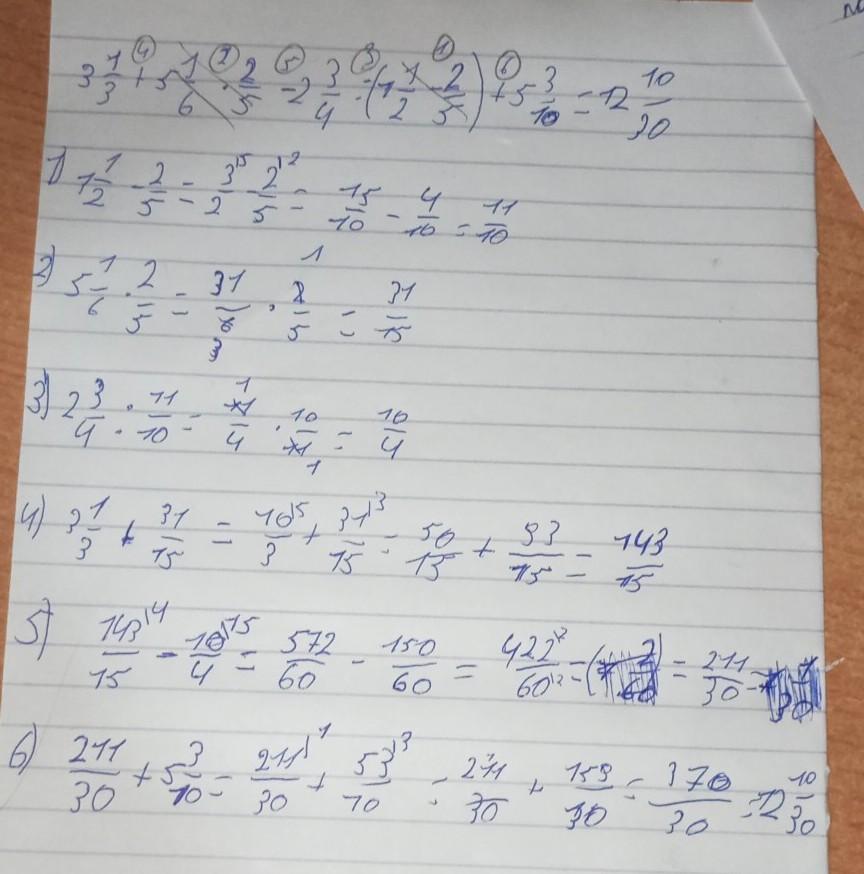 3 1/3 + 5 1/6 · 2/5 - 2 3/4 : (1 1/2 - 2/5) + 5 3/10 = 12 10/30
1) 1 1/2 - 2/5 = 3/2 - 2/5 = 15/10 - 4/10 = 11/10
2) 5 1/6 · 2/5 = 31/6 · 2/5 = 31/15
3) 2 3/4 : 11/10 = 11/4 · 10/11 = 10/4
4) 3 1/3 + 31/15 = 10/3 + 31/15 = 50/15 + 93/15 = 143/15
5) 143/15 - 10/4 = 572/60 - 150/60 = 422/60 = 211/30
6) 211/30 + 5 3/10 = 211/30 + 53/10 = 211/30 + 159/30 = 370/30 = 12 10/30